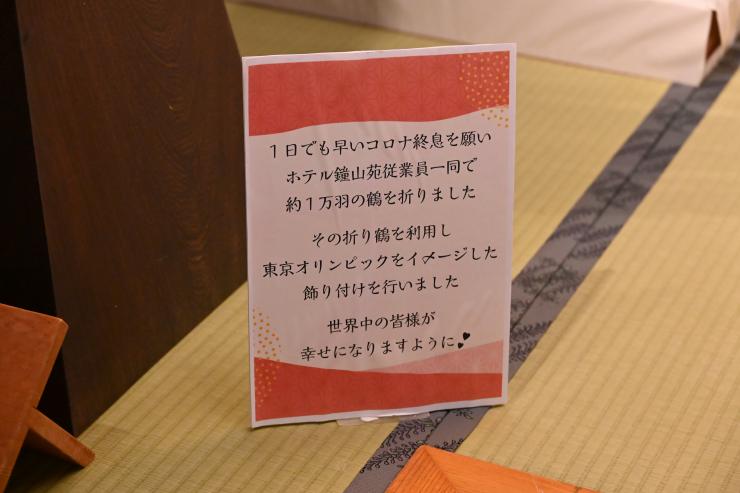 1日でも早いコロナ終息を願い
ホテル鐘山苑従業員一同で
約1万羽の鶴を折りました
その折り鶴を利用し
東京オリンピックをイメージした
飾り付けを行いました
世界中の皆様が
幸せになりますように